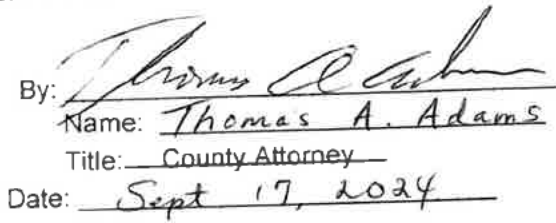 By: Thomas A Adams
Name: Thomas A. Adams
Title: County Attorney
Date: Sept 17, 2024